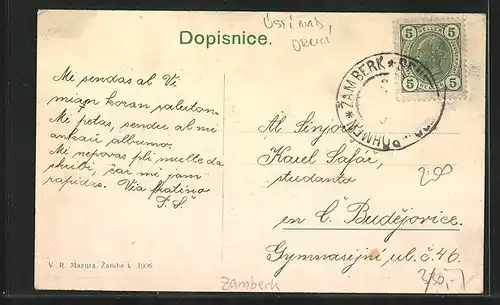 Ústí nad,
Orlicí
Dopisnice.
5 HELLER 5
5 HELLER 5
ŽAMBERK * SENFTENBERG BÖHMEN *
Mi sendas al Vi
mian koran saluton.
Mi petas, sendu al mi
ankaŭ albumo.
Mi nepovas pli multe da
skribi, ĉar mi jam
rapidas. Via fratino
F. Š.
Al Sinjoro
Karel Šafář,
studanto
en Č. Budějovice.
Gymnasijní ul. č. 46.
200
V. R. Mazura, Žamberk 1906
Žamberk